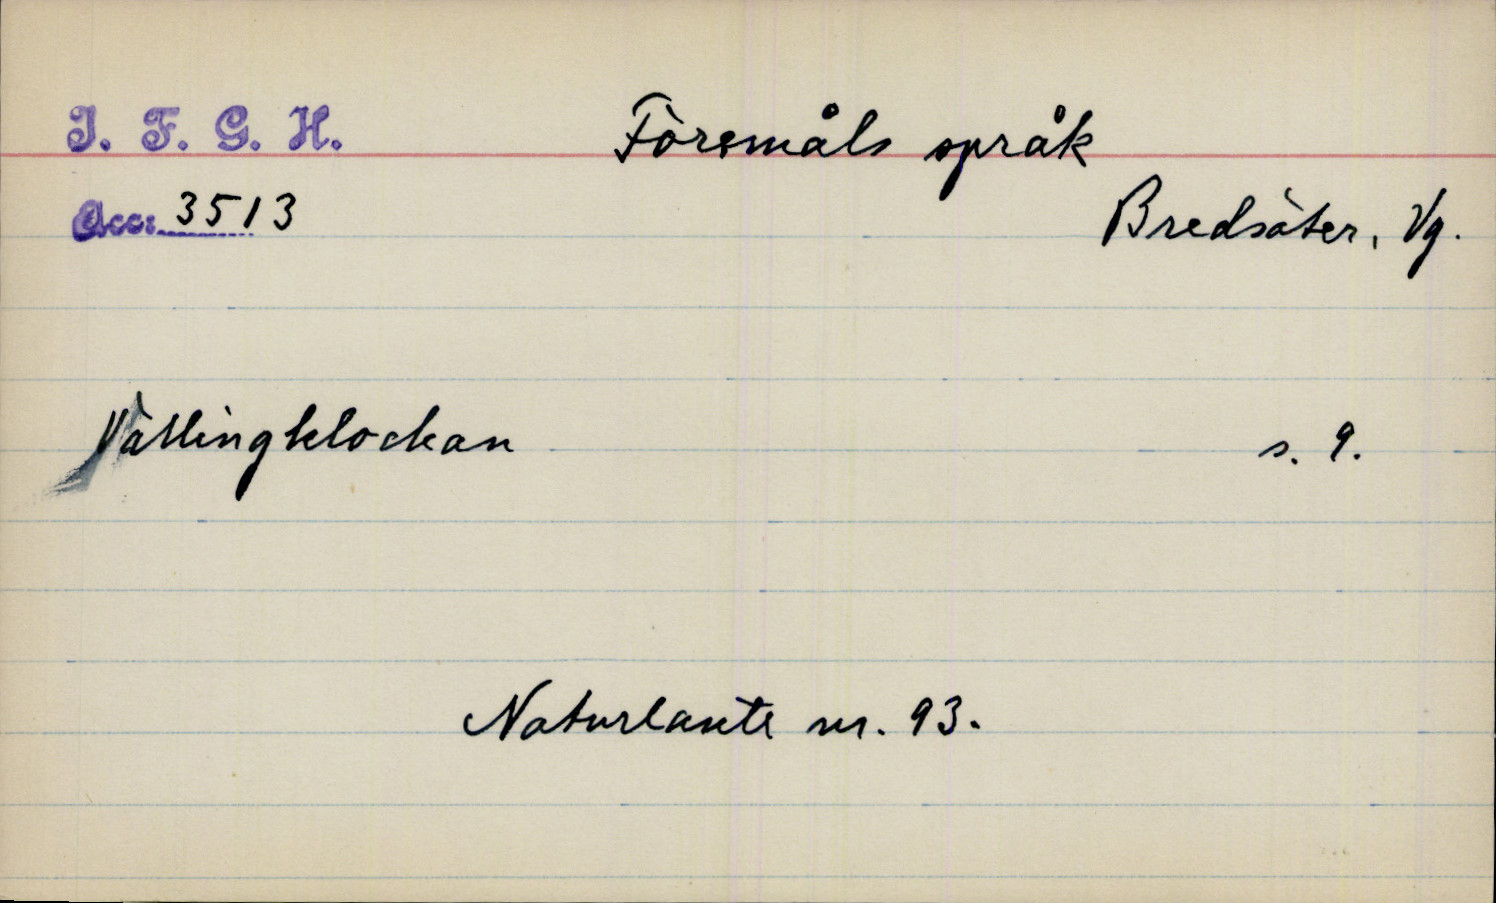 I. F. G. H.
Föremåls språk
Acc: 3513
Bredsäter, Vg.
Vällingklockan s. 9.
Naturlaute nr. 93.